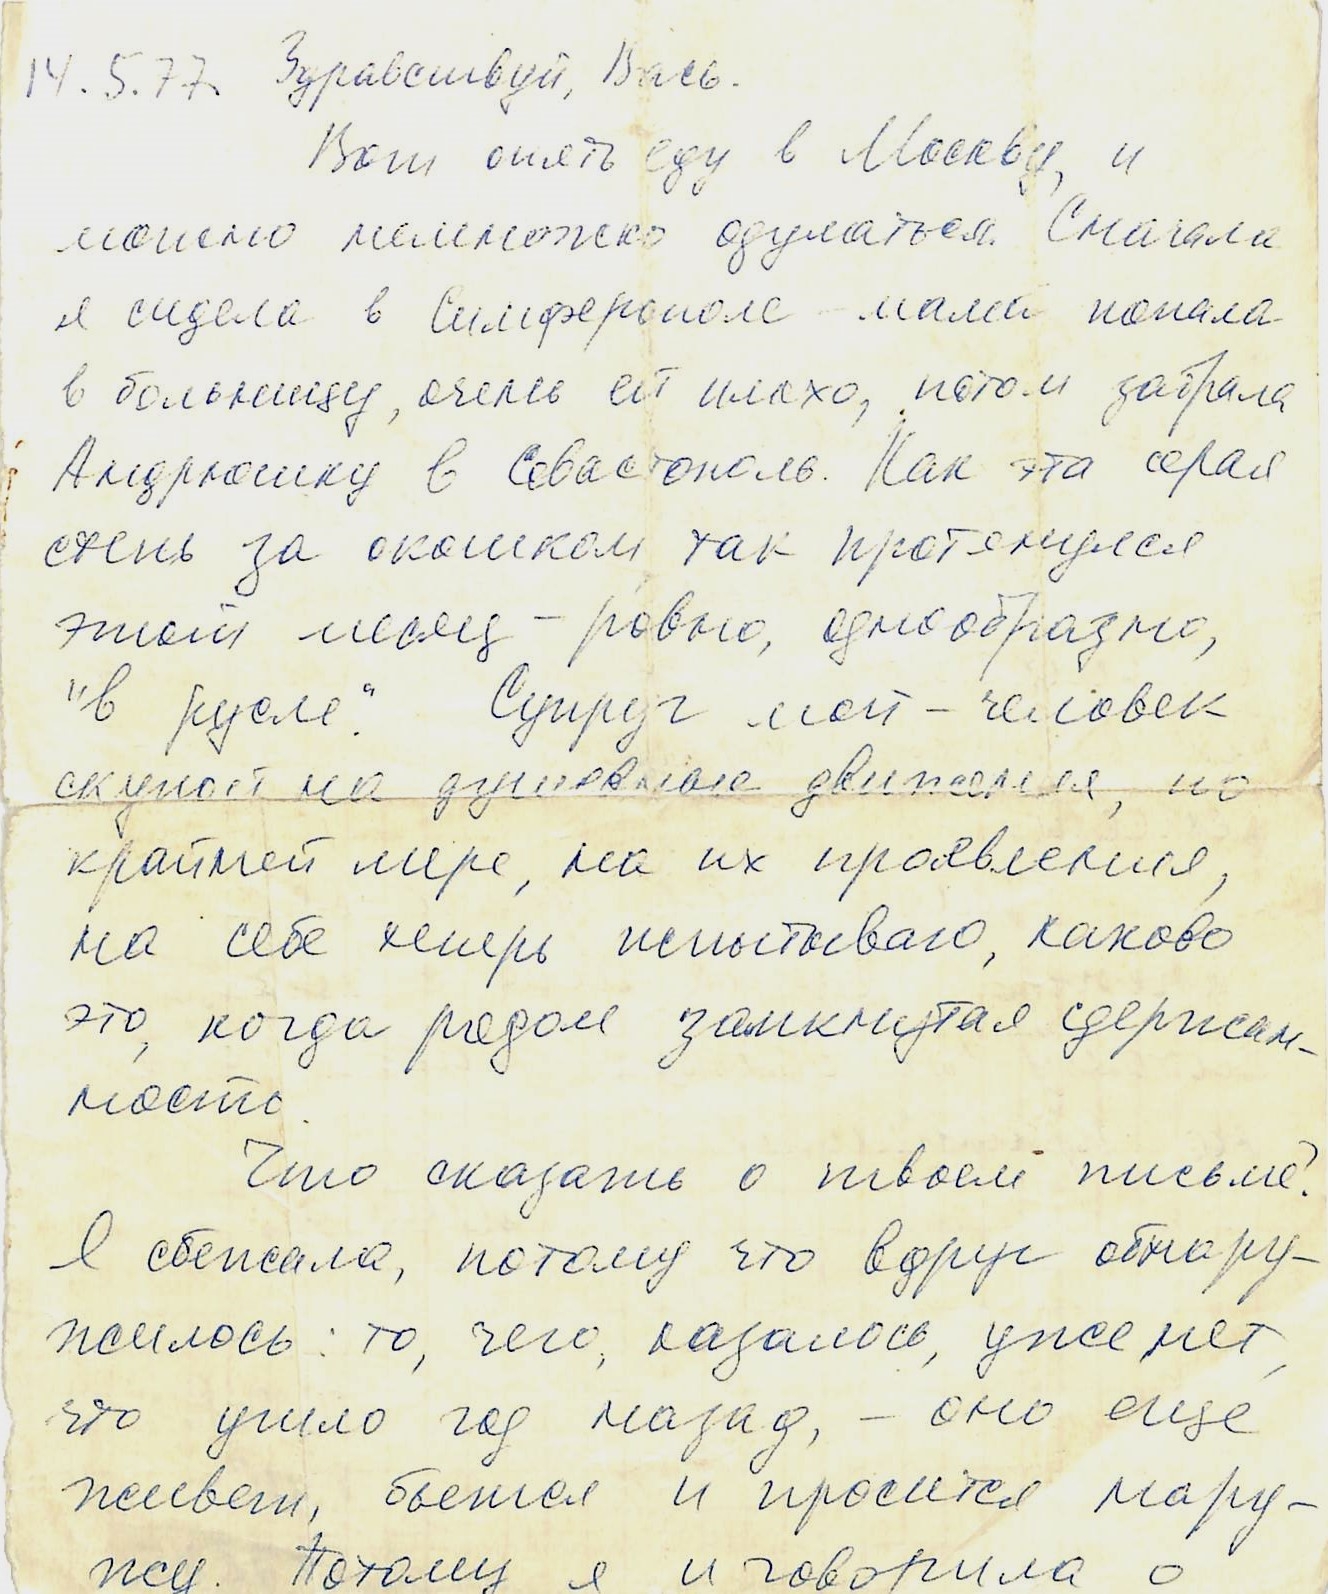 14.5.77. Здравствуй, Вась.
Вот опять еду в Москву, и
можно немножко одуматься. Сначала
я сидела в Симферополе – мама попала
в больницу, очень ей плохо, потом забрала
Андрюшку в Севастополь. Как эта серая
степь за окошком, так протянулся
этот месяц – ровно, однообразно,
"в русле". Супруг мой – человек
скупой на душевные движения, по
крайней мере, на их проявления,
на себе теперь испытываю, каково
это, когда рядом замкнутая сдержан-
ность.
Что сказать о твоем письме?
Я сбежала, потому что вдруг обнару-
жилось: то, чего, казалось, уже нет,
что ушло год назад, – оно еще
живет, бьется и просится нару-
жу. Потому я и говорила о